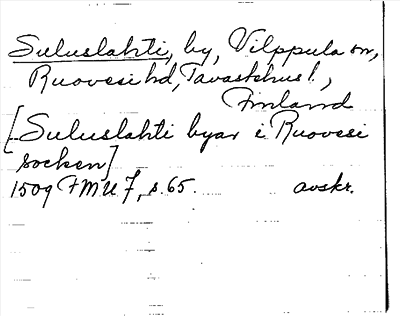 Suluslahti, by, Vilppula sn,
Ruovesi hd, Tavastehus l.,
Finland
[Suluslahti byar i Ruovesi
socken]
1509 FMU 7, s. 65. avskr.